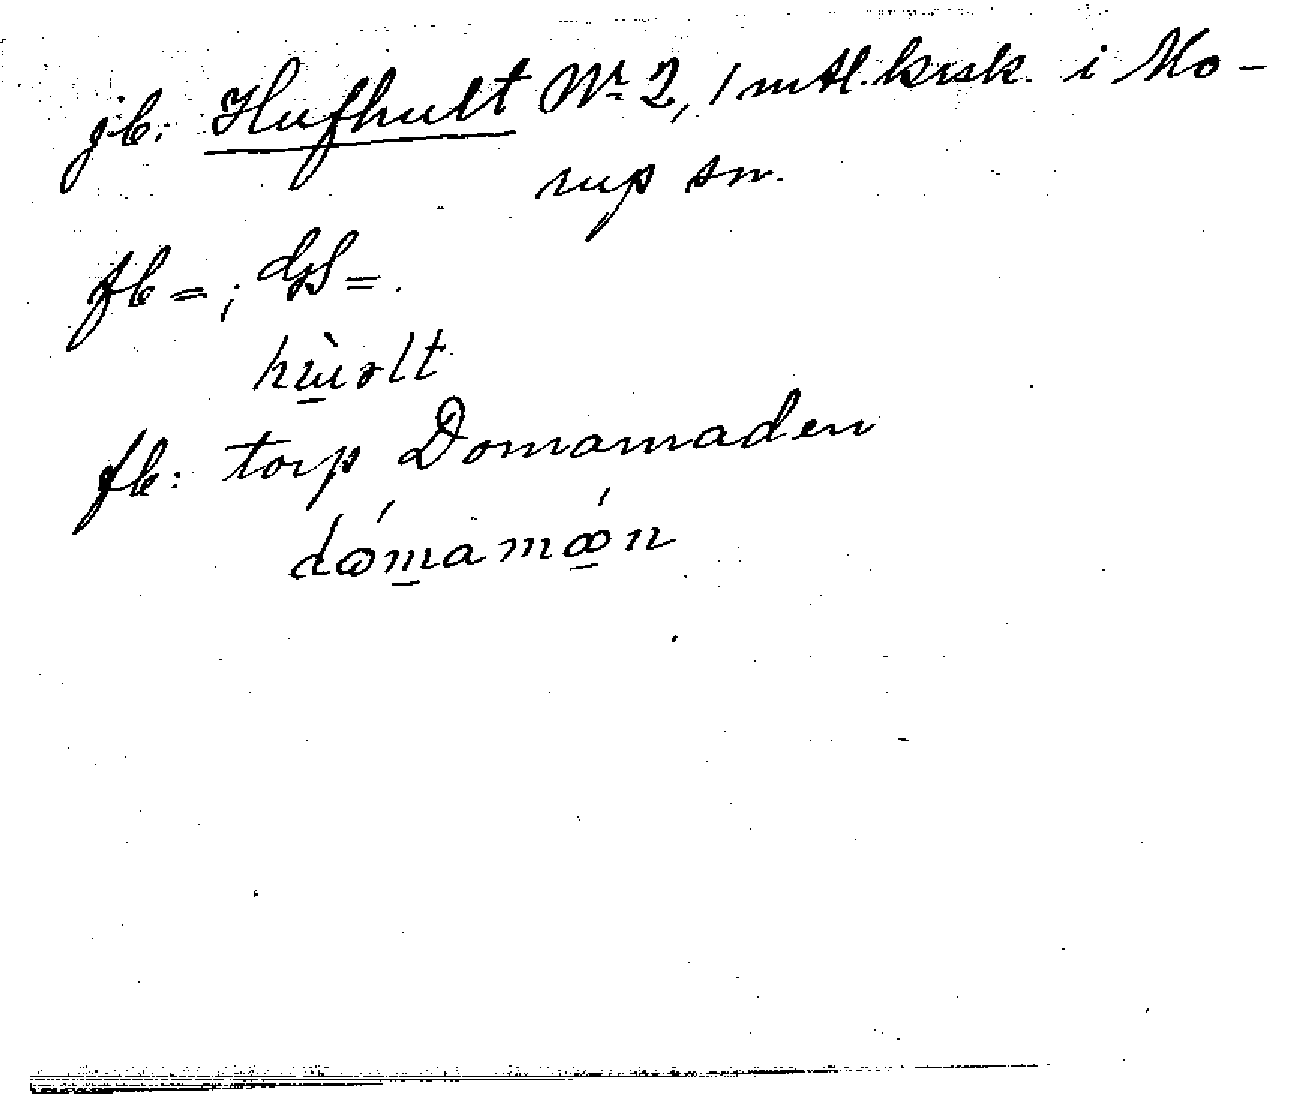 jb: Hufhult Nr 2, 1 mtl. krsk. i Mo-
rup sn.
fb =; GS =.
hu̱̇̀ɷlt
fb: torp Domamaden
dɷ́m̱amǫ́n